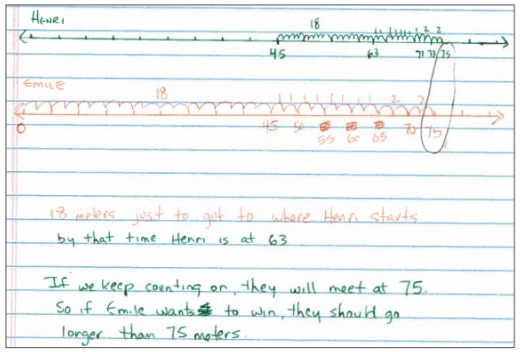 HENRI
18
1 1 1 1 1 1 2 2
45 63 71 73 75
EMILE
18
1 1 1 1 1 1 2 2
0 45 50 55 60 65 70 75
18 meters just to get to where Henri starts
by that time Henri is at 63
If we keep counting on, they will meet at 75.
So if Emile wants to win, they should go
longer than 75 meters.